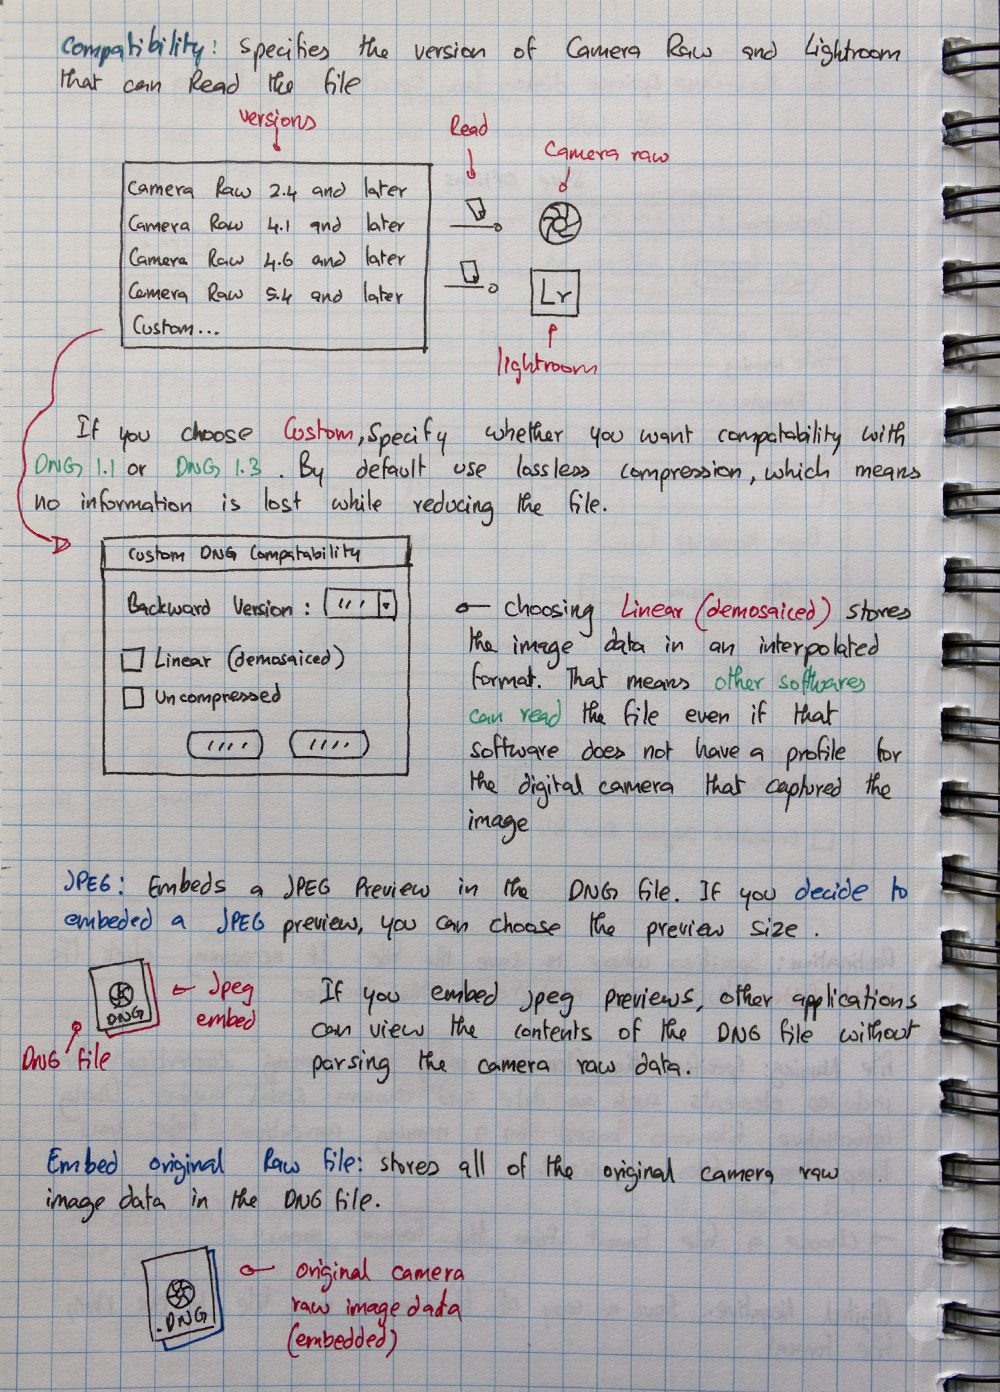 Compatibility: Specifies the version of Camera Raw and Lightroom
that can Read the file
versions
Read
Camera raw
Camera Raw 2.4 and later
Camera Raw 4.1 and later
Camera Raw 4.6 and later
Camera Raw 5.4 and later
Custom...
Lr
lightroom
If you choose Custom, Specify whether you want compatability with
DNG 1.1 or DNG 1.3. By default use lossless compression, which means
no information is lost while reducing the file.
Custom DNG Compatability
Backward Version:
Linear (demosaiced)
Uncompressed
Choosing Linear (demosaiced) stores
the image data in an interpolated
format. That means other softwares
can read the file even if that
software does not have a profile for
the digital camera that captured the
image
JPEG: Embeds a JPEG Preview in the DNG file. If you decide to
embeded a JPEG preview, you can choose the preview size.
DNG
Jpeg
embed
DNG file
If you embed jpeg previews, other applications
can view the contents of the DNG file without
parsing the camera raw data.
Embed original Raw file: stores all of the original camera raw
image data in the DNG file.
.DNG
original camera
raw image data
(embedded)